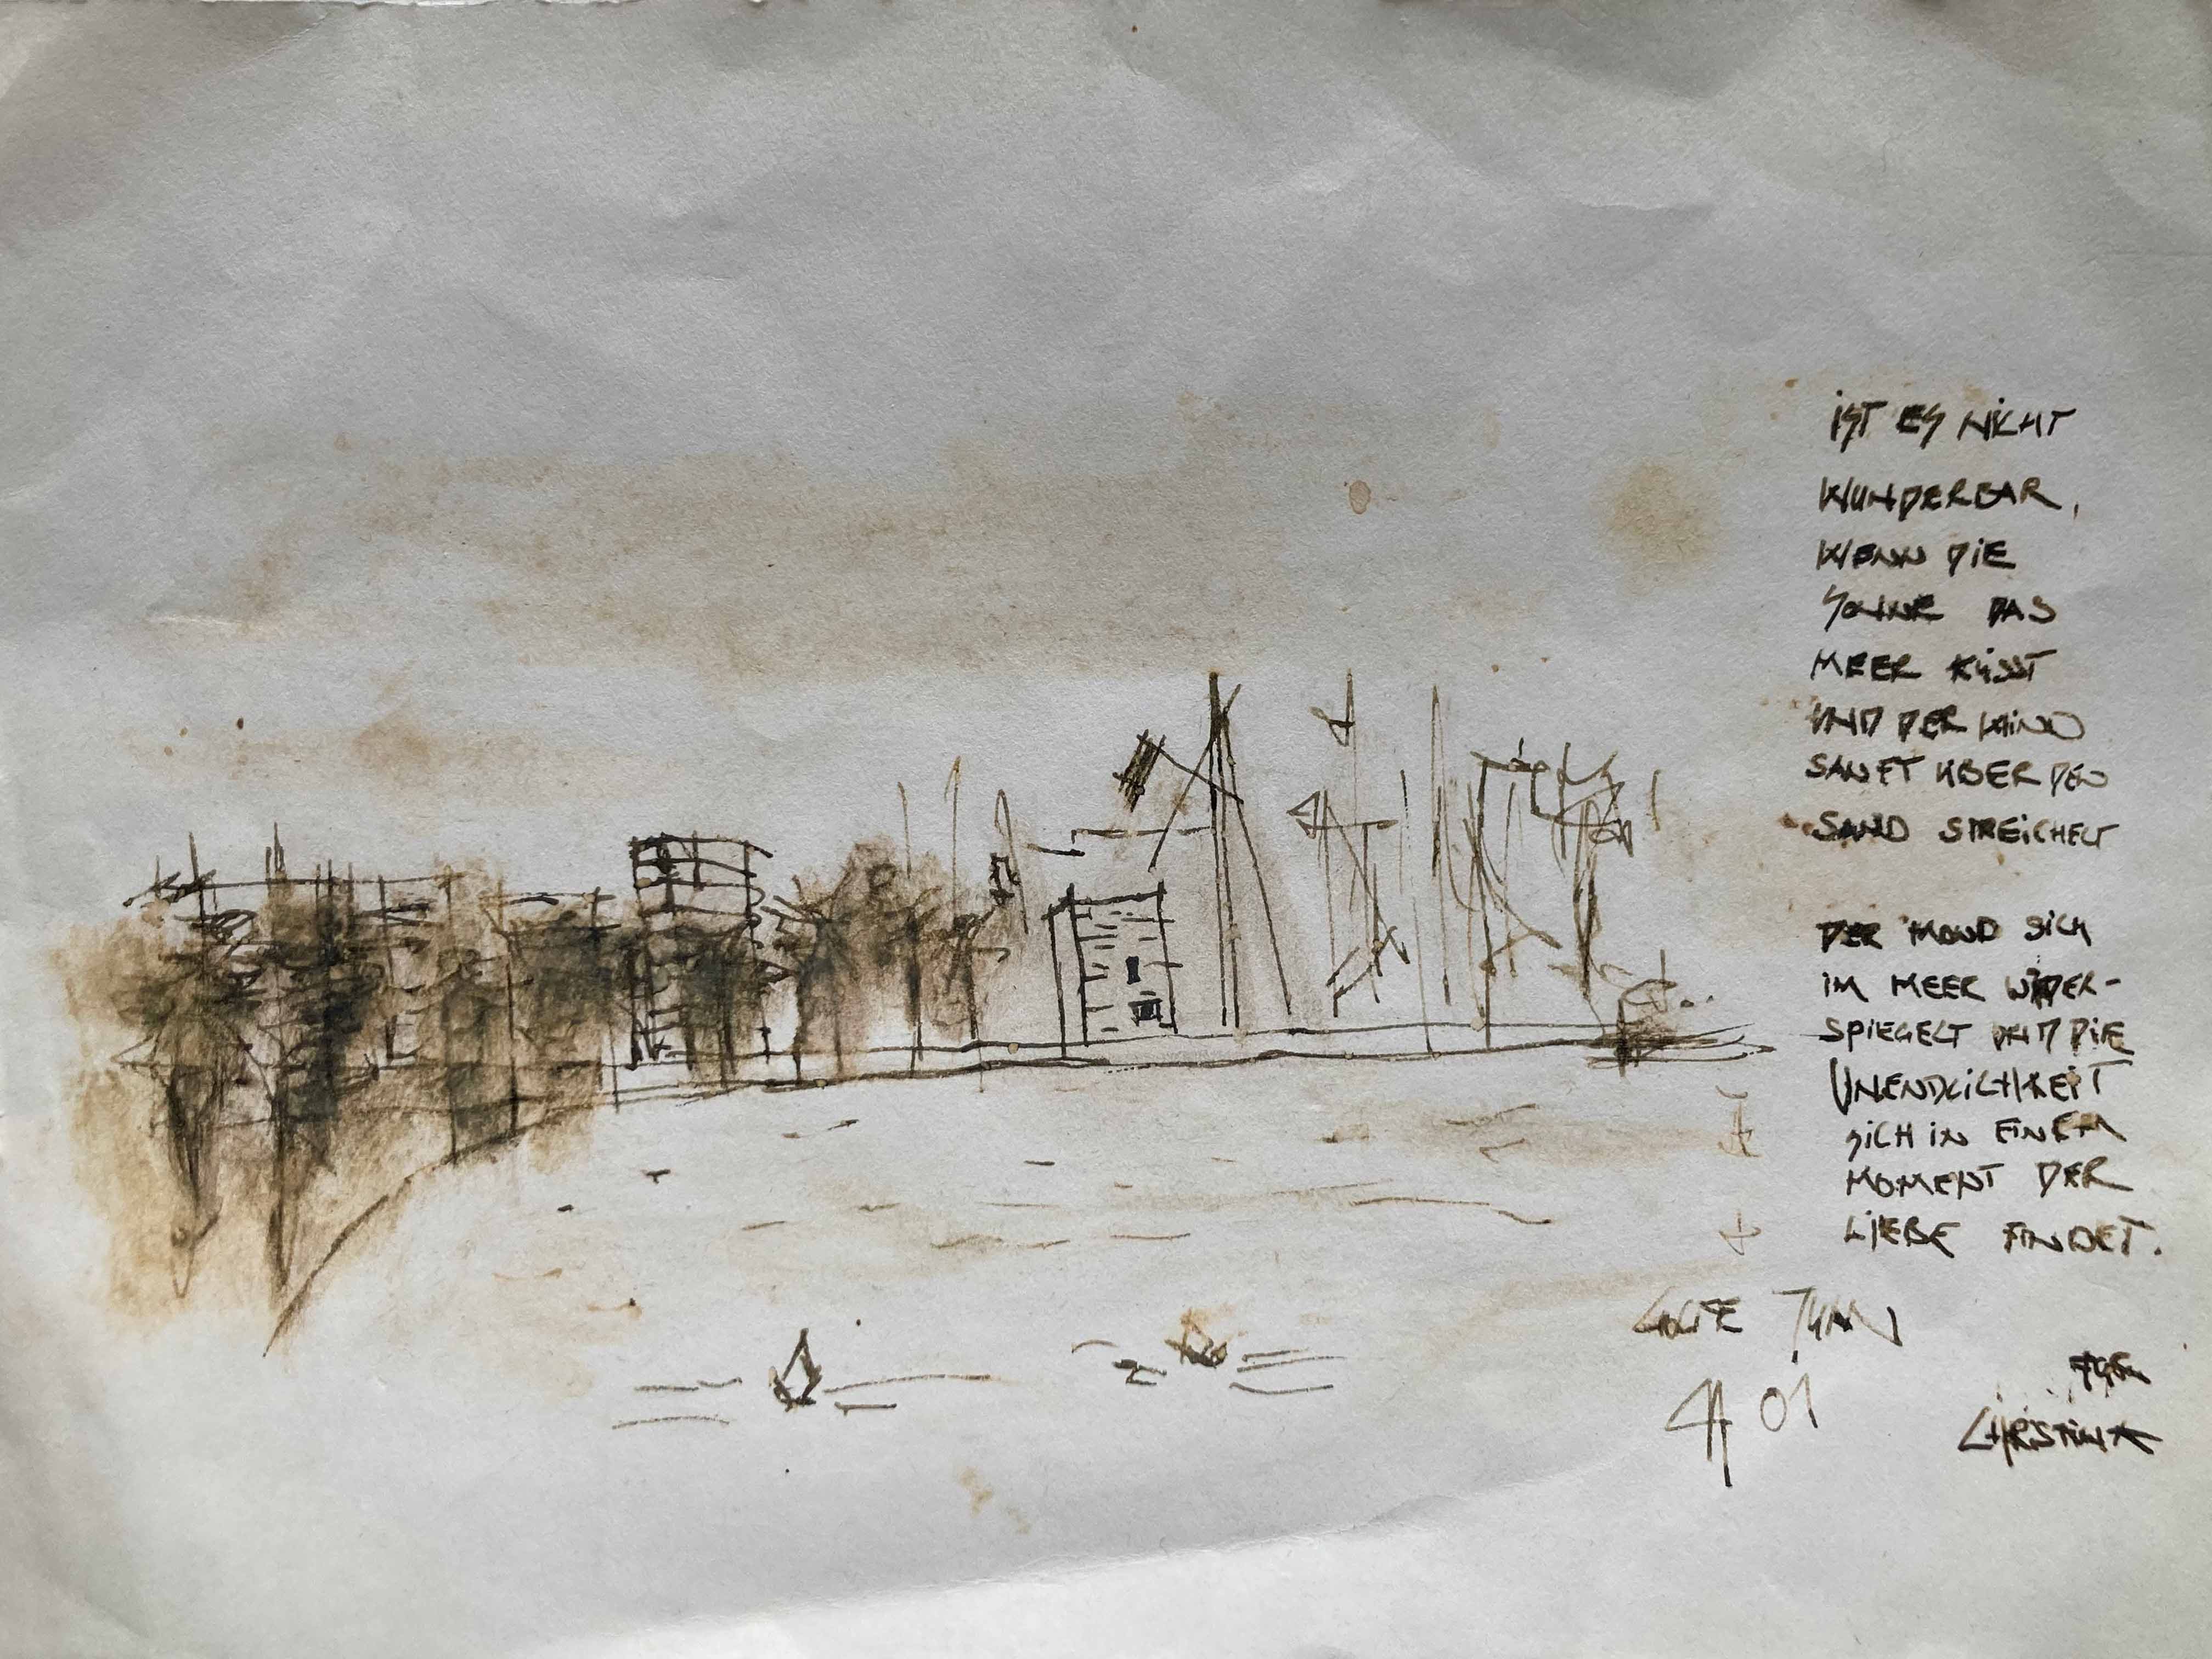 IST ES NICHT
WUNDERBAR,
WENN DIE
SONNE DAS
MEER KÜSST
UND DER WIND
SANFT ÜBER DEN
SAND STREICHELT
DER MOND SICH
IM MEER WIDER-
SPIEGELT UND DIE
UNENDLICHKEIT
SICH IN EINEM
MOMENT DER
LIEBE FINDET.
GOLFE JUAN
01
FÜR
CHRISTINA